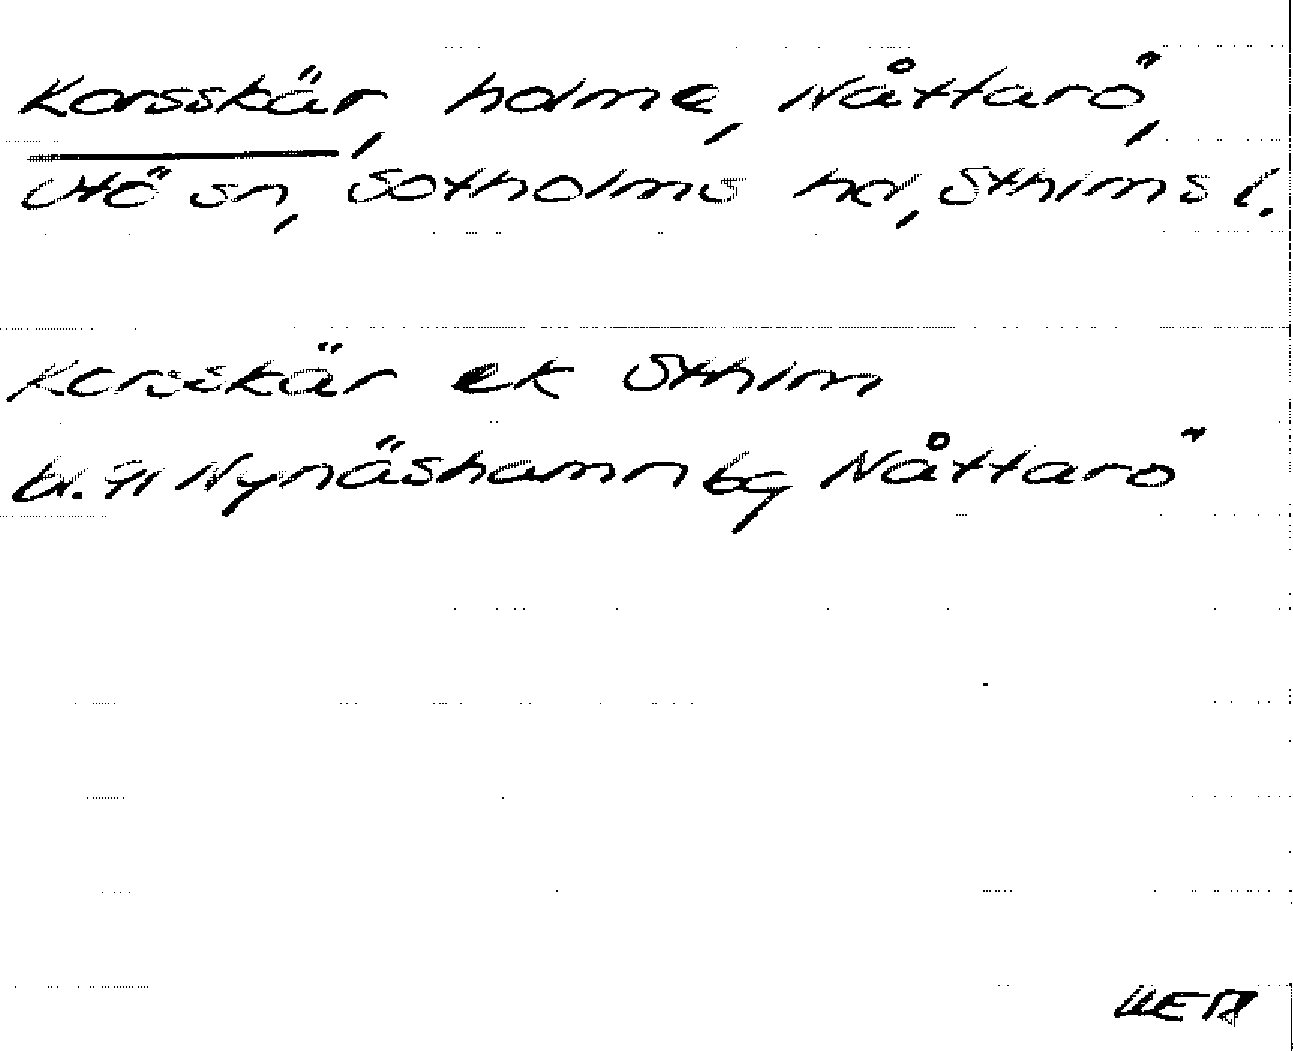 Korsskär, holme, Nåttarö,
Utö sn, Sotholms hd, Sthlms l.
Korsskär ek Sthlm
bl. 91 Nynäshamn bg Nåttarö